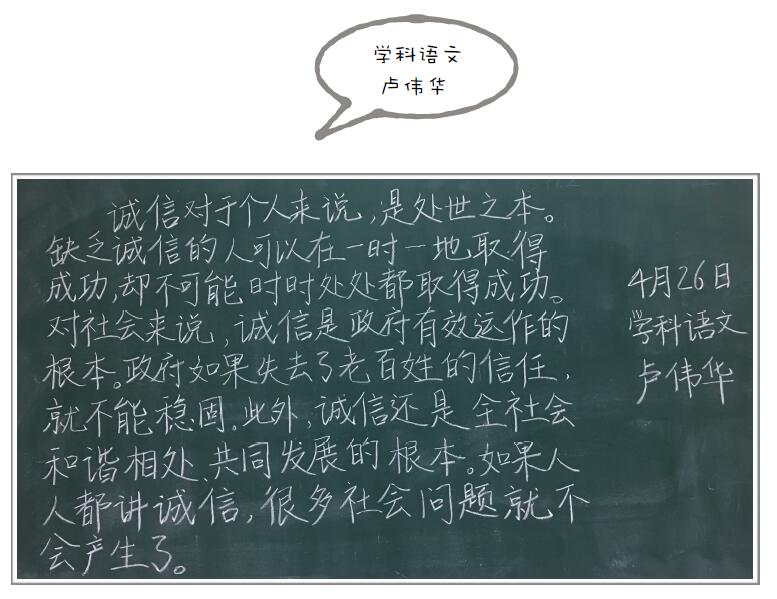 学科语文
卢伟华
诚信对于个人来说,是处世之本。
缺乏诚信的人可以在一时一地取得
成功,却不可能时时处处都取得成功。
对社会来说,诚信是政府有效运作的
根本。政府如果失去了老百姓的信任,
就不能稳固。此外,诚信还是全社会
和谐相处、共同发展的根本。如果人
人都讲诚信,很多社会问题就不
会产生了。
4月26日
学科语文
卢伟华